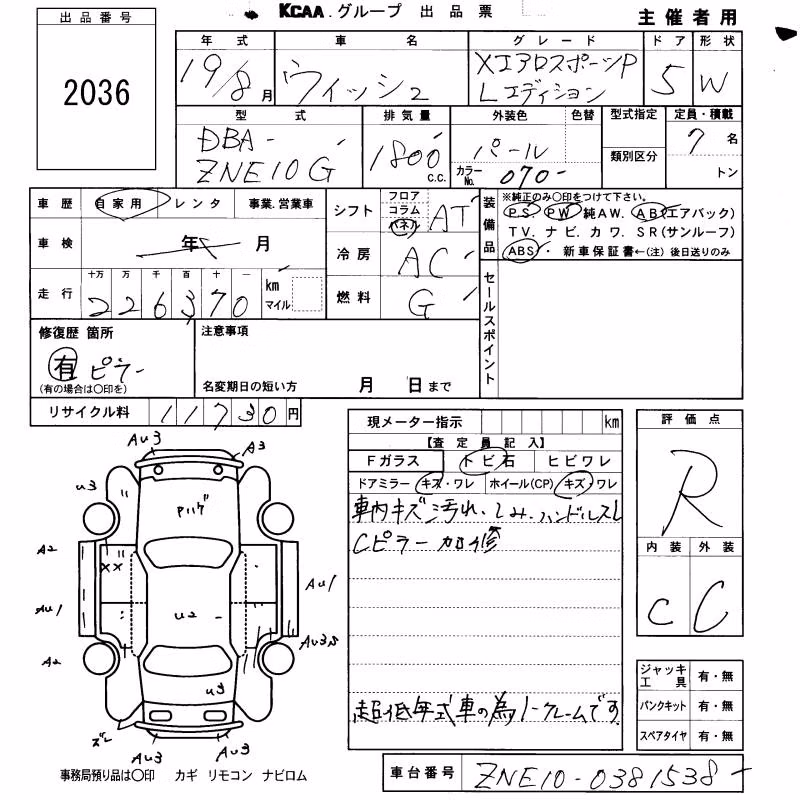 KCAA グループ 出品票
主催者用
出品番号
2036
年式 車名 グレード ドア 形状
19/8月 ウィッシュ XエアロスポーツP Lエディション 5 W
型式 排気量 外装色 色替 型式指定 定員・積載
DBA-ZNE10G 1800 c.c. パール 7名
カラーNo. 070- 類別区分 トン
車歴 自家用 レンタ 事業.営業車
シフト フロア コラム パネル AT
装備品 ※純正のみ〇印をつけて下さい。
P.S. PW 純AW. AB(エアバック)
TV. ナビ. カワ. SR(サンルーフ)
ABS・ 新車保証書←(注) 後日送りのみ
車検 年 月
冷房 AC
走行 十万 万 千 百 十 一
226370 km マイル
燃料 G
セールスポイント
修復歴 箇所
有 ピラー
(有の場合は〇印を)
注意事項
名変期日の短い方 月 日まで
リサイクル料 11730円
現メーター指示 km
【査定員記入】
Fガラス トビ石 ヒビワレ
ドアミラー キズ・ワレ ホイール(CP) キズ・ワレ
車内キズ汚れ・シミ・ハンドルスレ
Cピラー加修
超低年式車の為ノークレームです
評価点
R
内装 外装
C C
ジャッキ工具 有・無
パンクキット 有・無
スペアタイヤ 有・無
AU3
A3
U3
Pハゲ
A2
XX
AU1
AU1
U2
AU3,S
A2
U3
ズレ
AU3
AU3
事務局預り品は〇印 カギ リモコン ナビロム
車台番号 ZNE10-0381538